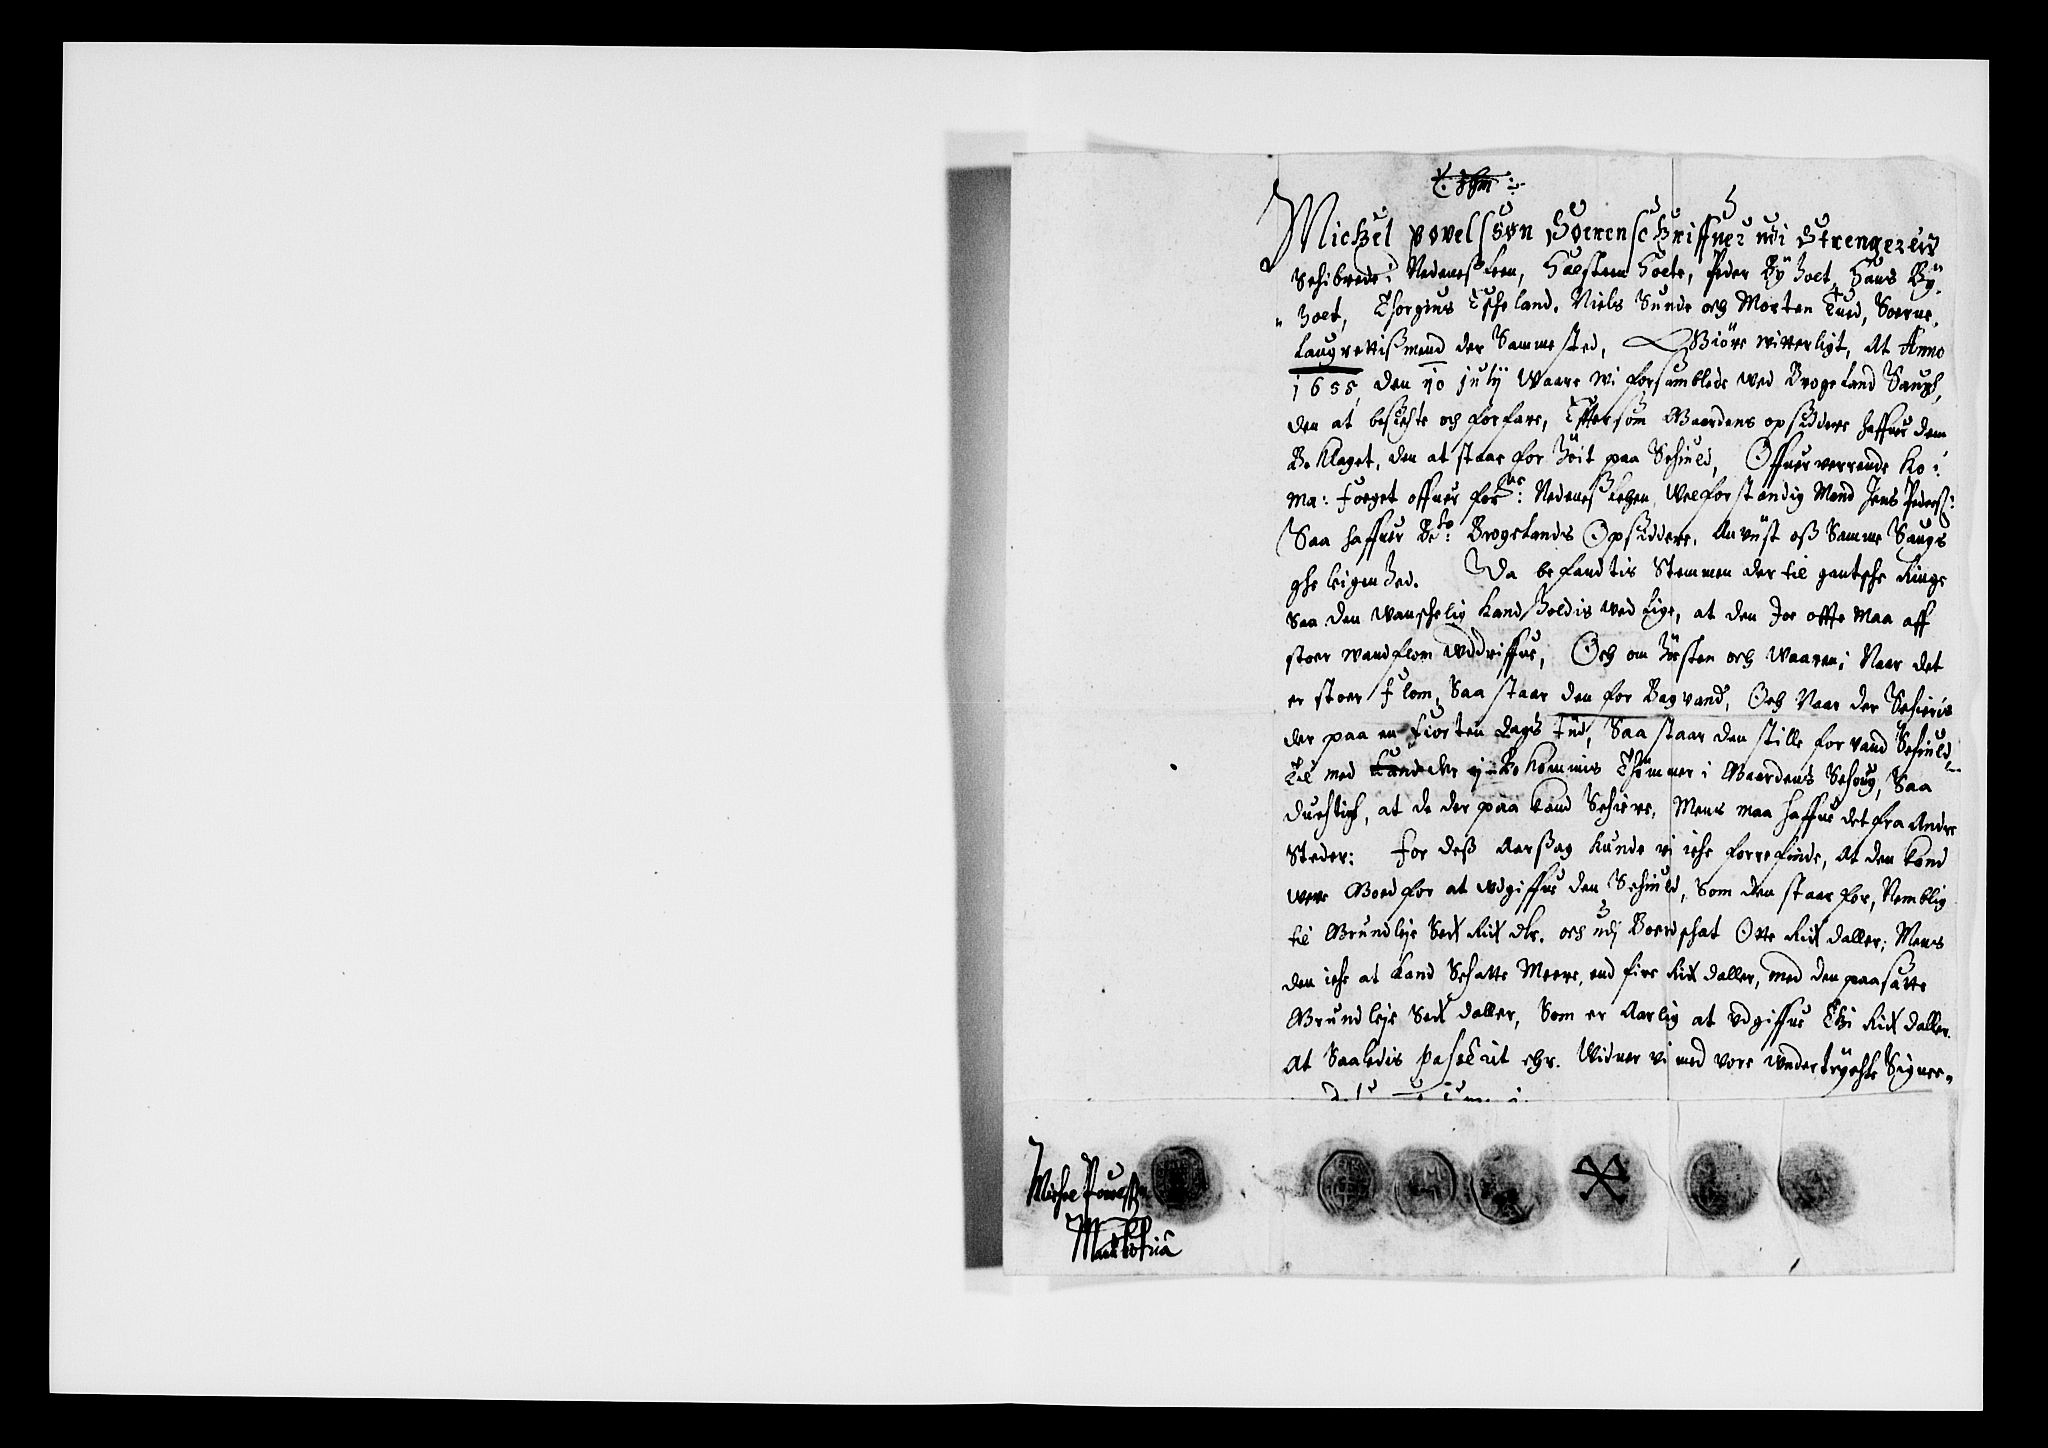 Michel povelssøn Soerenschriffuer udi Strengereidz
Schibrede i Nedenes Leen, Halsteen Holte, Peder Byholt, Hans By-
holt, Thorgius Escheland, Niels Sunde och Morten Tued, Soerne
Laugrettismend der Sammested, Giøre witterligt, At Anno
1655, den 10 julÿ Waare wi forsamblede wed Brogeland Saugh,
den at besichte och forfare, Efftersom Gaardens opsiddere haffuer dem
Beklaget, den at staae for høit paa Schiuld, Offuerwerende Ko:
Ma: Foeget offuer for: Nedenes Lehen, Welforstandig Mand Jens Peders:
Saa haffuer Be: Brogelands Opsiddere, Anvüst oss Samme Saugs
gheleigenhed. Da befandtis Stemmen der til gantsche Ringe
Saa den wanschelig kand holdis wed lige, at den Joe offte maa aff
stoer wandflom Wddriffue, Och om høsten och Waaren, Naar det
er stoer flom, Saa staar den for Bagvand, Och Naar der Scheris
der paa en fiorten dags tüd, Saa staar den stille for vand Schiuld,
Til med der Bekommis Thømmer i Gaardens Schoug, Saa
duchtigh, at de der paa kand Schiere, Mens maa haffue det fra Andre
Steder: For dess Aarsag kunde wi iche forrefinde, At den kand
were Goed for at udgiffue den Schiuld, Som den staar for, Nemblig
til Grundleje Sex Rix dlr. och udj Boerdschat Otte Rix daller; Mens
den iche at kand Schatte Meere, end fire Rix daller, med den paasatte
Grundleje Sex daller, Som er Aarlig at udgiffue Thi Rix daller.
At Saaledis passerit ehr. Widner vi med vore undertrÿchte Signe-
Michel Pouelss